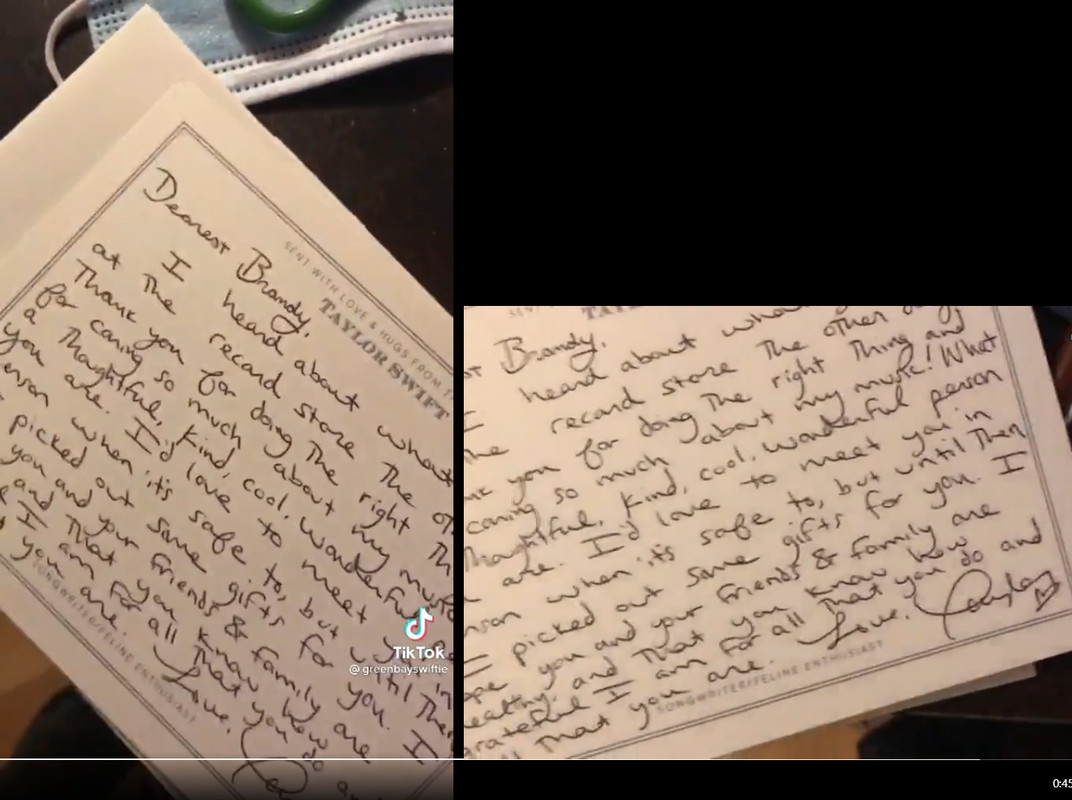 SENT WITH LOVE & HUGS FROM
TAYLOR SWIFT
Dearest Brandy,
I heard about what
at the record store the
Thank you for doing the right
for caring so much about my
a thoughtful, kind, cool, wonderful
you are. I'd love to meet in
when it's safe to, but until then
picked out some gifts for you. I
you and your friends & family are
and that you know how
I am for all that you do
you are. Love,
SONGWRITER/FELINE ENTHUSIAST
TikTok
@greenbayswiftie
Brandy,
heard about
record store the other
you for doing the right thing and
caring so much about my music! What
thoughtful, kind, cool, wonderful person
are. I'd love to meet you in
when it's safe to, but until then
I picked out some gifts for you. I
you and your friends & family are
and that you know how
grateful I am for all that you do and
that you are. Love, Taylor
SONGWRITER/FELINE ENTHUSIAST
0:45